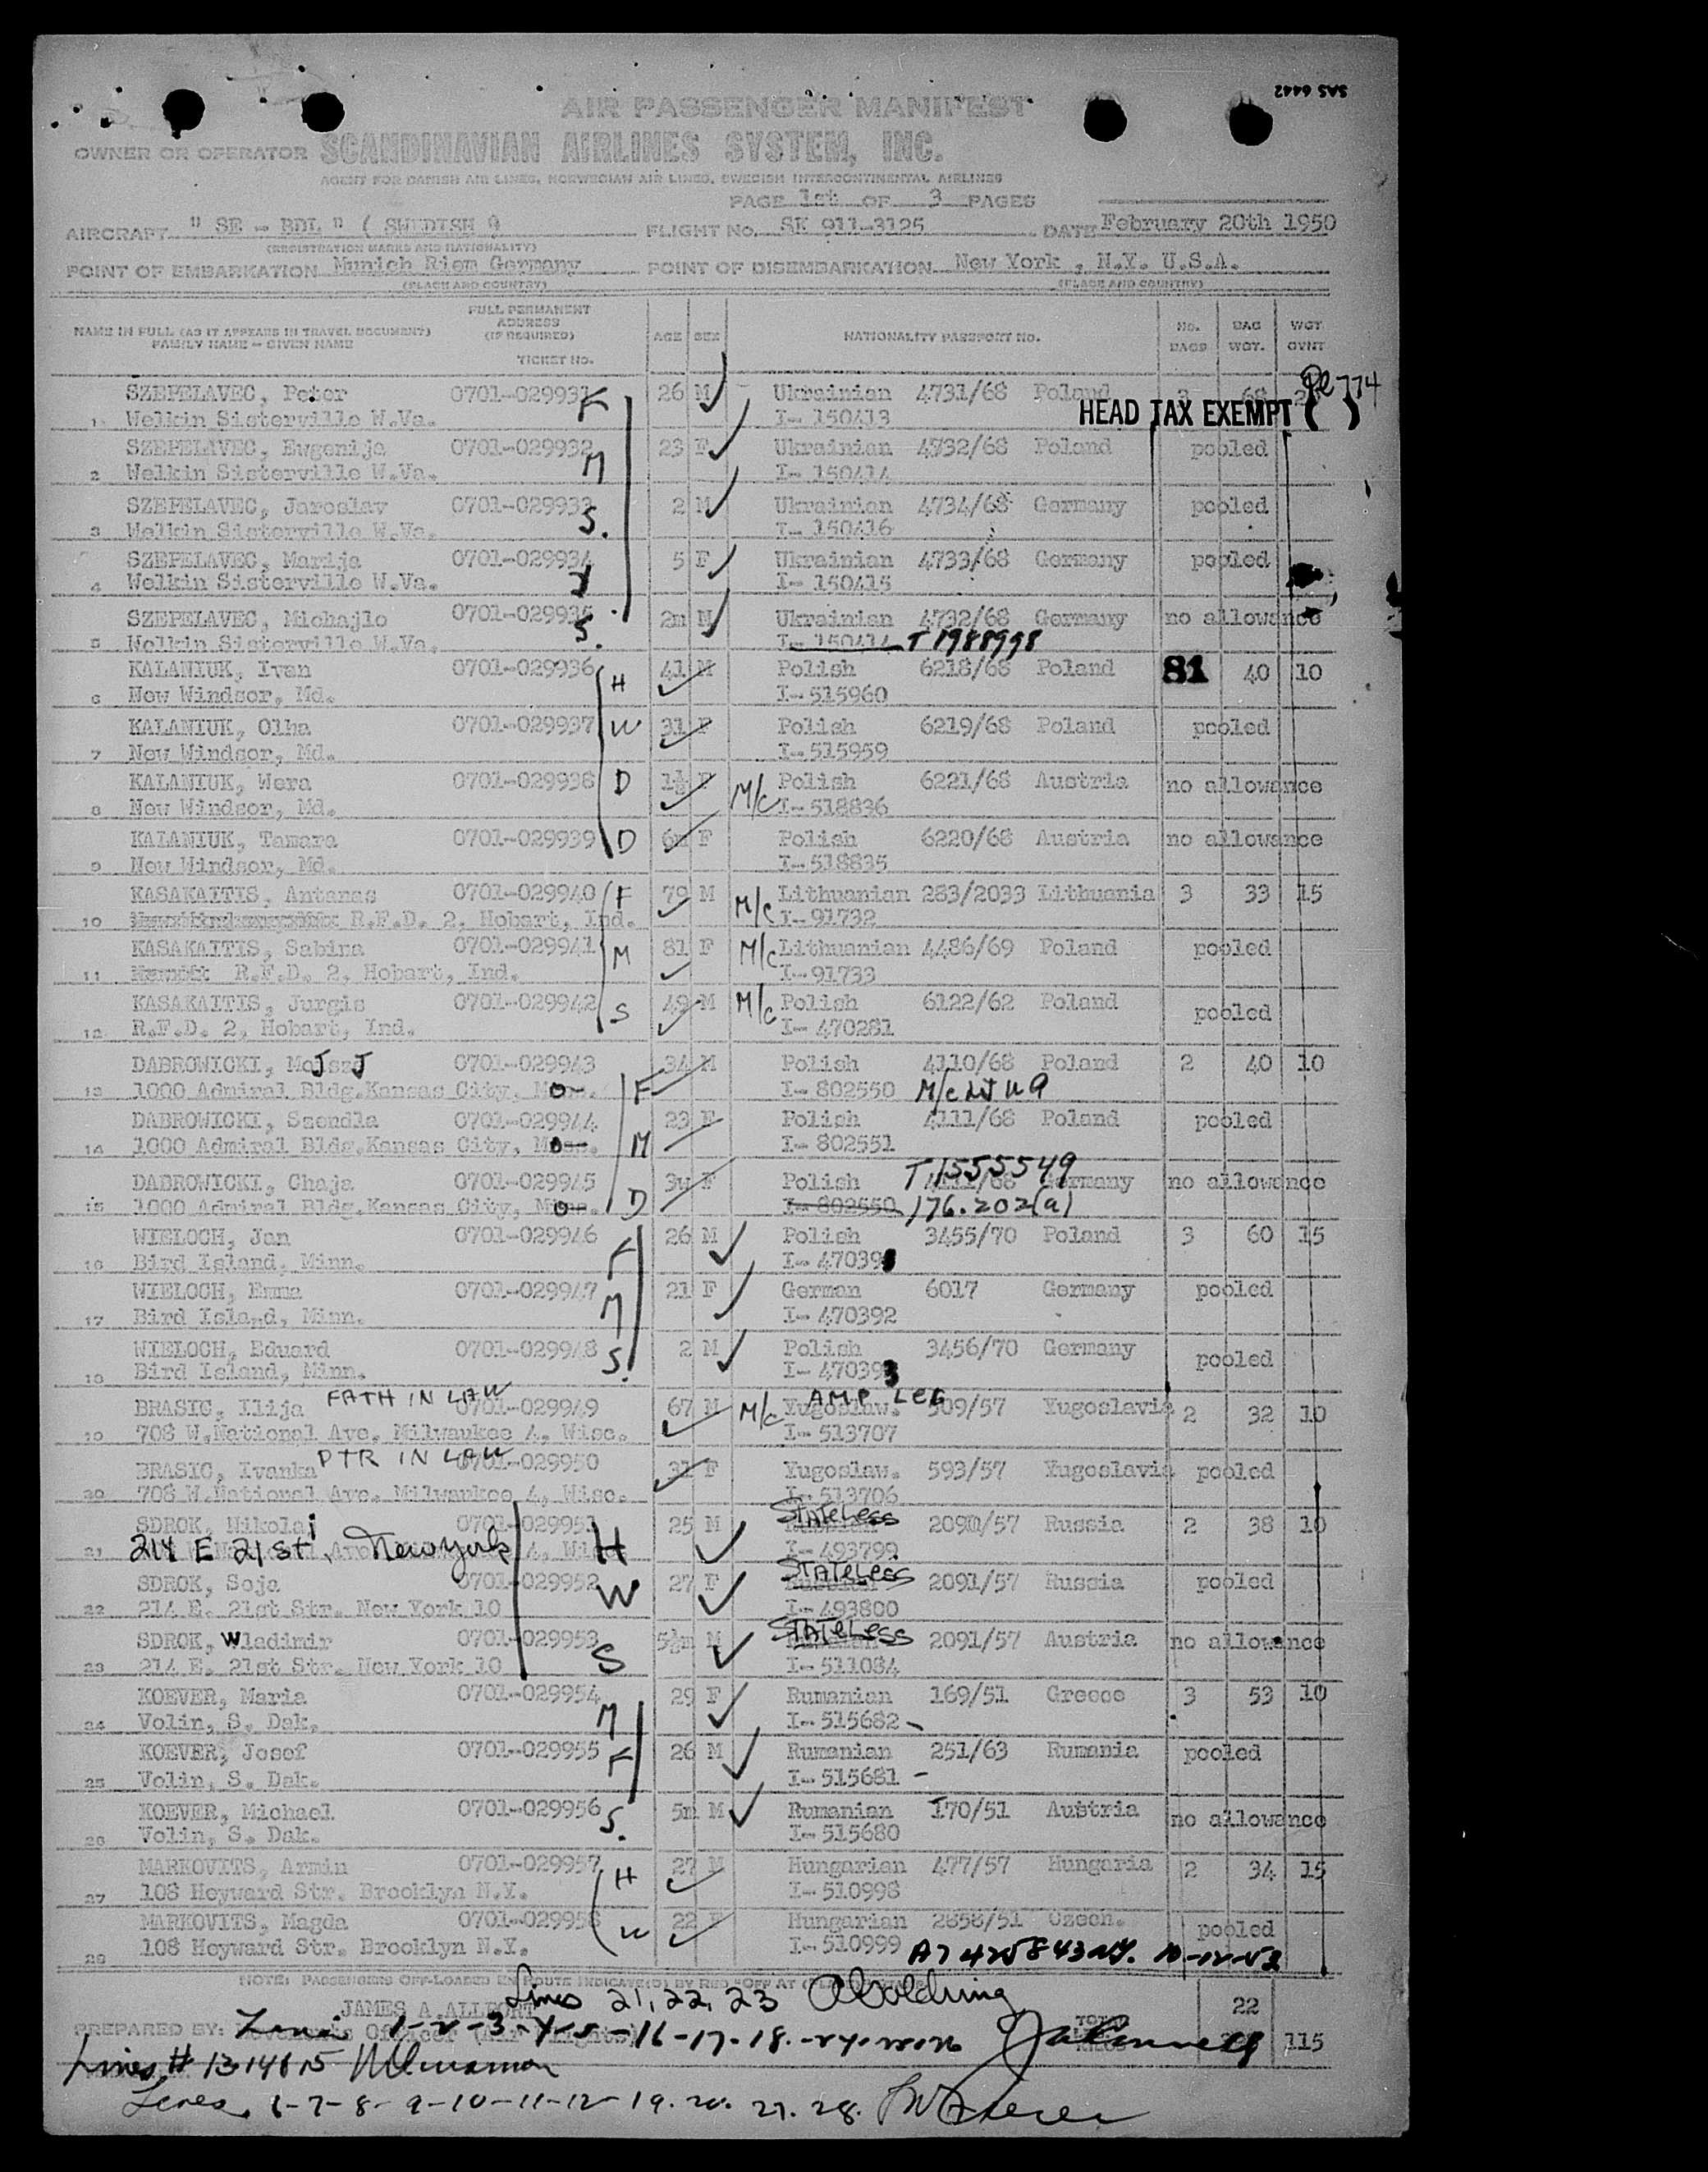 SAS 6442
AIR PASSENGER MANIFEST
OWNER OR OPERATOR SCANDINAVIAN AIRLINES SYSTEM, INC.
AGENT FOR DANISH AIR LINES, NORWEGIAN AIR LINES, SWEDISH INTERCONTINENTAL AIRLINES
PAGE 1st OF 3 PAGES
AIRCRAFT " SE - BDL " ( SWEDISH ) FLIGHT No. SK 911-3125 DATE February 20th 1950
(REGISTRATION MARKS AND NATIONALITY)
POINT OF EMBARKATION Munich Riem Germany POINT OF DISEMBARKATION New York , N.Y. U.S.A.
(PLACE AND COUNTRY) (PLACE AND COUNTRY)
NAME IN FULL (AS IT APPEARS IN TRAVEL DOCUMENT) FAMILY NAME - GIVEN NAME FULL PERMANENT ADDRESS (IF REQUIRED) TICKET No. AGE SEX NATIONALITY PASSPORT NO. No. BAGS BAG WGT. WGT OVNT
SZEPELAVEC, Peter 0701-029931 F 26 M Ukrainian 4731/68 Poland 3 68
1 Welkin Sisterville W.Va. I- 150413 HEAD TAX EXEMPT ( )
SZEPELAVEC, Ewgenija 0701-029932 23 F Ukrainian 4732/68 Poland pooled
2 Welkin Sisterville W.Va. M I- 150414
SZEPELAVEC, Jaroslav 0701-029933 2 M Ukrainian 4734/68 Germany pooled
3 Welkin Sisterville W.Va. S. I- 150416
SZEPELAVEC, Marija 0701-029934 5 F Ukrainian 4733/68 Germany pooled
4 Welkin Sisterville W.Va. I- 150415
SZEPELAVEC, Michajlo 0701-029935 2m M Ukrainian 4732/68 Germany no allowance
5 Welkin Sisterville W.Va. S. I- 150414 T 1988998
KALANIUK, Ivan 0701-029936 H 41 M Polish 6218/68 Poland 81 40 10
6 New Windsor, Md. I- 515960
KALANIUK, Olha 0701-029937 W 31 F Polish 6219/68 Poland pooled
7 New Windsor, Md. I- 515959
KALANIUK, Wera 0701-029938 D 1½ F Polish 6221/68 Austria no allowance
8 New Windsor, Md. M/c I- 518836
KALANIUK, Tamara 0701-029939 D 6m F Polish 6220/68 Austria no allowance
9 New Windsor, Md. I- 518835
KASAKAITIS, Antanas 0701-029940 F 79 M Lithuanian 283/2033 Lithuania 3 33 15
10 R.F.D. 2, Hobart, Ind. M/c I- 91732
KASAKAITIS, Sabina 0701-029941 M 81 F M/c Lithuanian 4486/69 Poland pooled
11 R.F.D. 2, Hobart, Ind. I- 91733
KASAKAITIS, Jurgis 0701-029942 S 49 M M/c Polish 6122/62 Poland pooled
12 R.F.D. 2, Hobart, Ind. I- 470281
DABROWICKI, MoJszJ 0701-029943 34 M Polish 4110/68 Poland 2 40 10
13 1000 Admiral Bldg.Kansas City, Mo F I- 802550
DABROWICKI, Szendla 0701-029944 23 F Polish 4111/68 Poland pooled
14 1000 Admiral Bldg.Kansas City, Mo M I- 802551
DABROWICKI, Chaja 0701-029945 3w F Polish T 1555549 Germany no allowance
15 1000 Admiral Bldg.Kansas City, Mo D I- 802550 176.202(a)
WIELOCH, Jan 0701-029946 26 M Polish 3455/70 Poland 3 60 15
16 Bird Island, Minn. F I- 470391
WIELOCH, Emma 0701-029947 21 F German 6017 Germany pooled
17 Bird Island, Minn. M I- 470392
WIELOCH, Eduard 0701-029948 2 M Polish 3456/70 Germany pooled
18 Bird Island, Minn. S. I- 470393
FATH IN LAW AMP LEG
BRASIC, Ilija 0701-029949 67 M M/c Yugoslaw. 509/57 Yugoslavia 2 32 10
19 708 W.National Ave. Milwaukee 4, Wisc. I- 513707
DTR IN LAW
BRASIC, Ivanka 0701-029950 31 F Yugoslaw. 593/57 Yugoslavia pooled
20 708 W.National Ave. Milwaukee 4, Wisc. I- 513706
SDROK, Nikolai 0701-029951 25 M STATELESS 2090/57 Russia 2 38 10
21 214 E 21st, New York H I- 493799
SDROK, Soja 0701-029952 W 27 F STATELESS 2091/57 Russia pooled
22 214 E. 21st Str. New York 10 I- 493800
SDROK, Wladimir 0701-029953 5½m M STATELESS 2091/57 Austria no allowance
23 214 E. 21st Str. New York 10 S I- 511084
KOEVER, Maria 0701-029954 29 F Rumanian 169/51 Greece 3 53 10
24 Volin, S. Dak. M I- 515682
KOEVER, Josef 0701-029955 F 26 M Rumanian 251/63 Rumania pooled
25 Volin, S. Dak. I- 515681
KOEVER, Michael 0701-029956 S. 5m M Rumanian 170/51 Austria no allowance
26 Volin, S. Dak. I- 515680
MARKOVITS, Armin 0701-029957 H 27 M Hungarian 477/57 Hungaria 2 34 15
27 108 Heyward Str. Brooklyn N.Y. I- 510998
MARKOVITS, Magda 0701-029958 W 22 F Hungarian 2858/51 Czech. pooled
28 108 Heyward Str. Brooklyn N.Y. I- 510999
NOTE: PASSENGERS OFF-LOADED EN ROUTE INDICATE(D) BY RED "OFF AT
Lines 21, 22, 23
JAMES A. ALLPORT 22
PREPARED BY: 115
Lines # 13 14 & 15
Lines 6-7-8-9-10-11-12-19.20. 27.28.